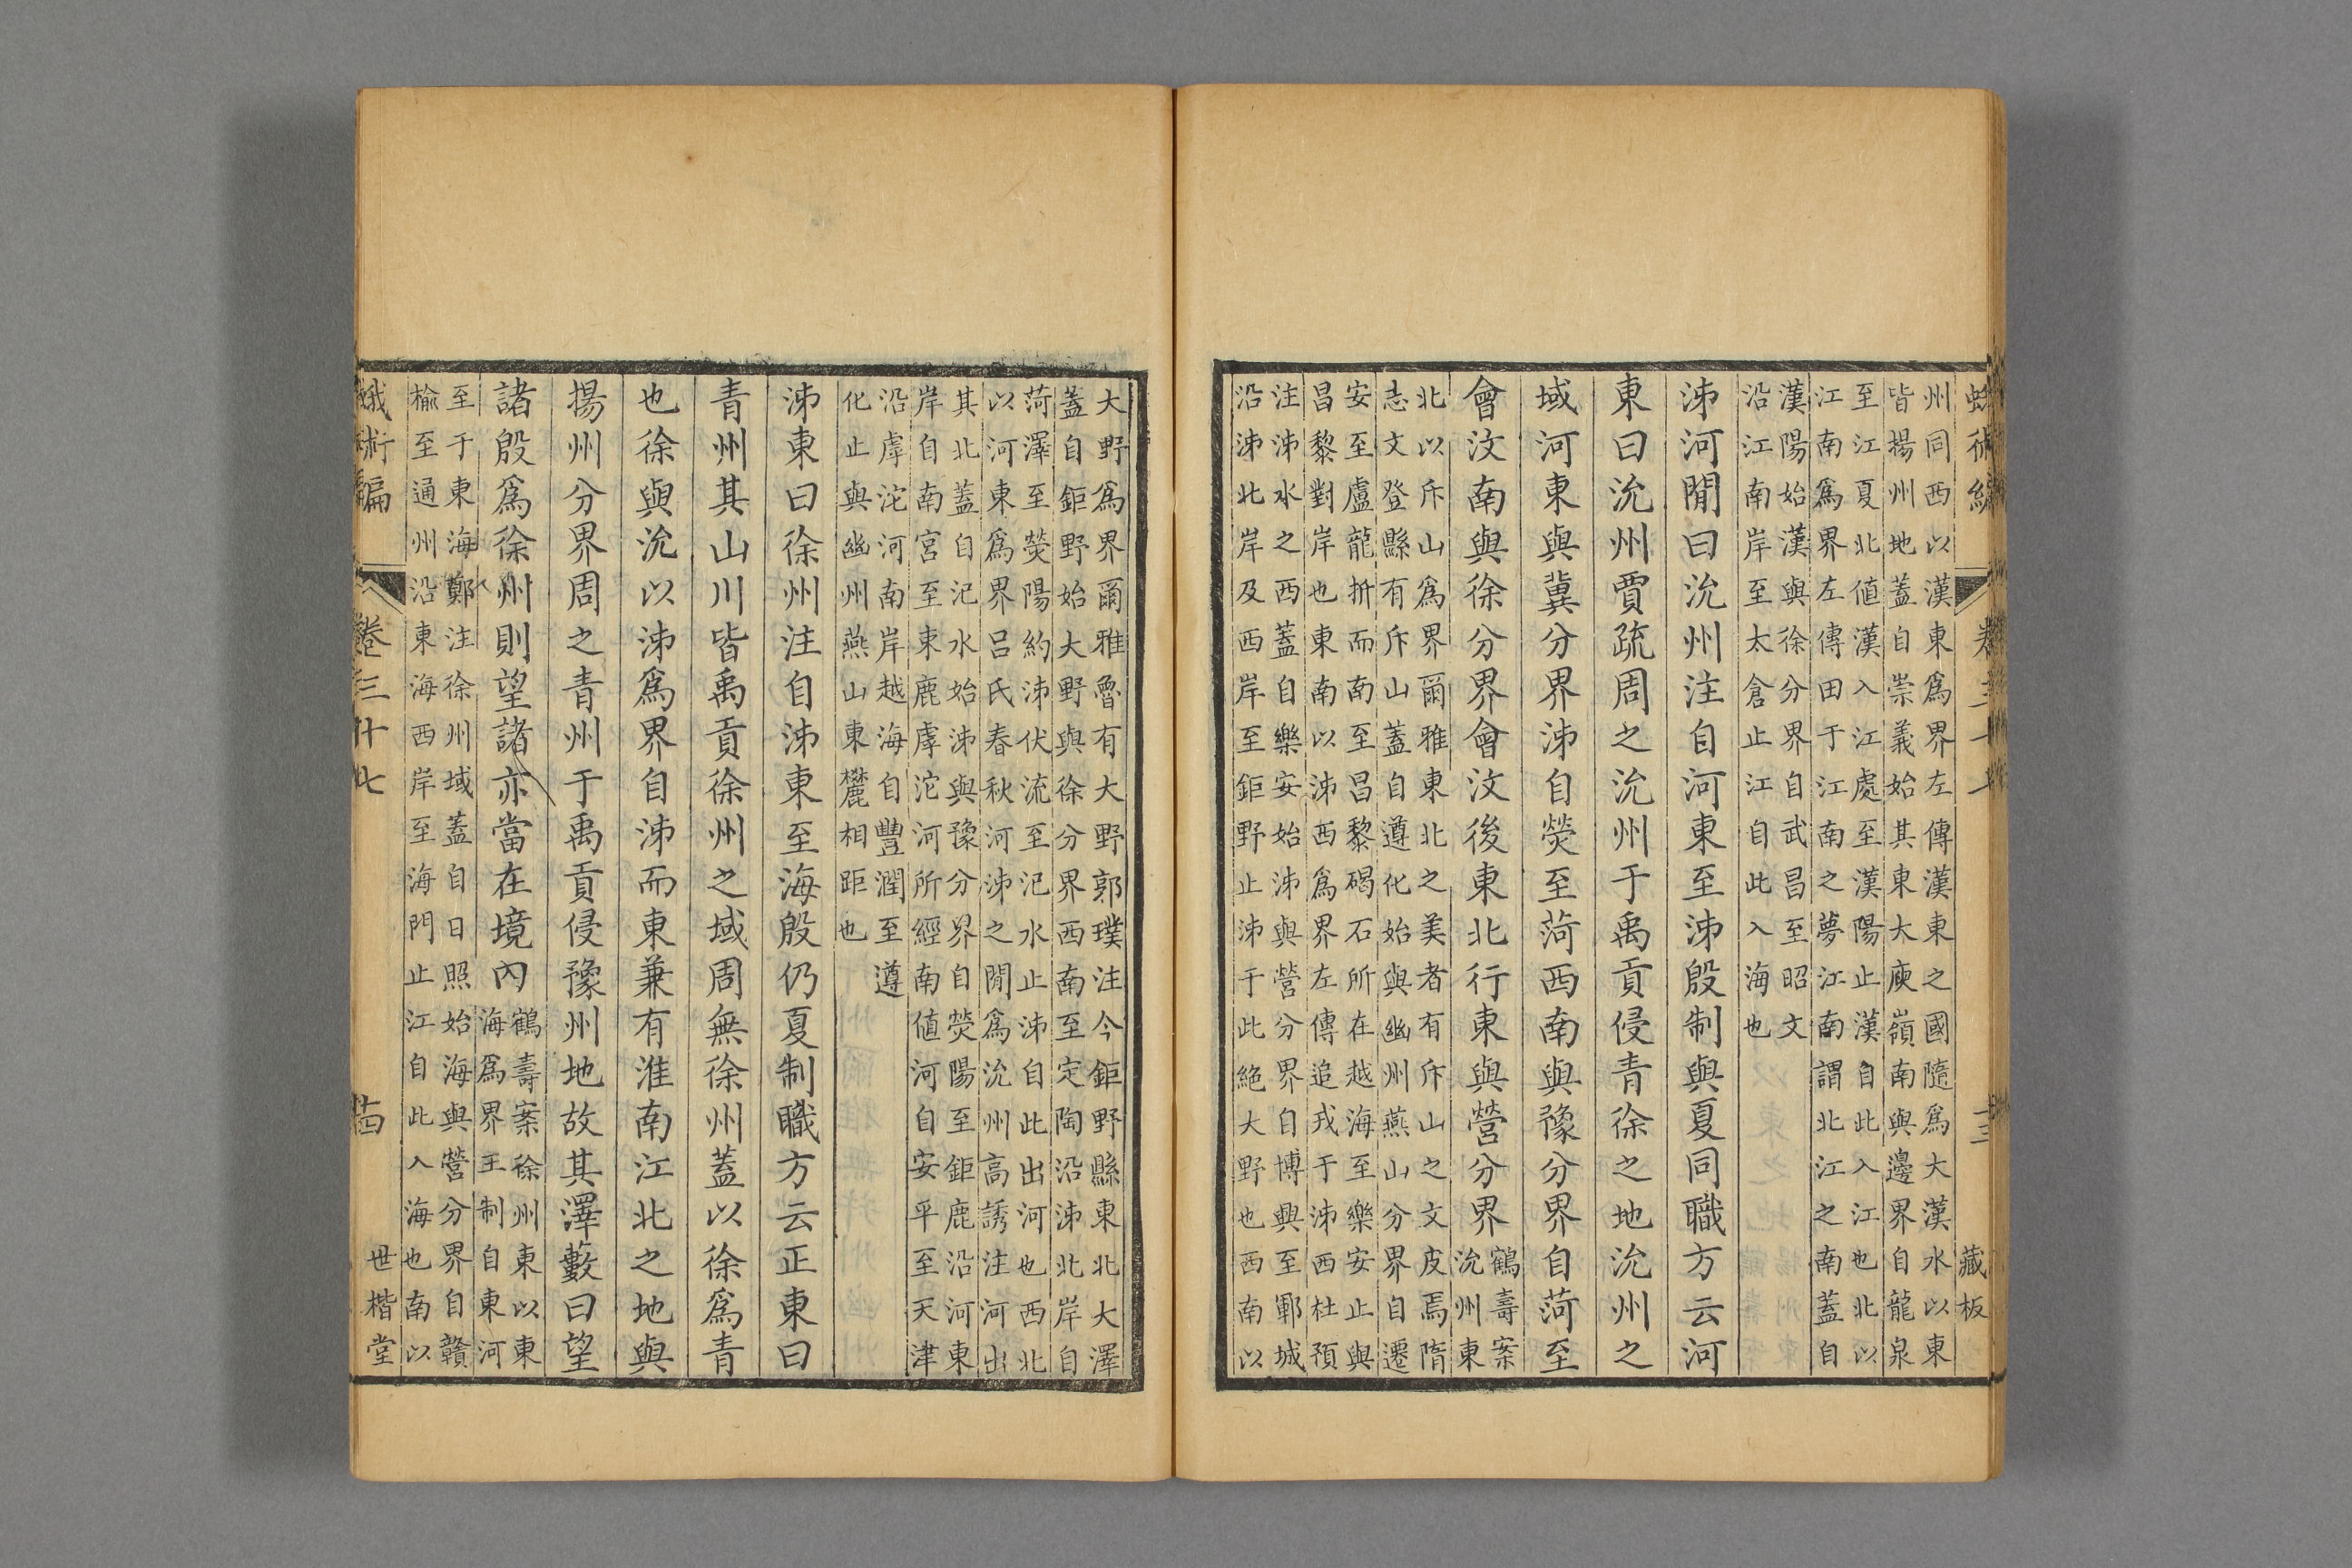 蛾術編　卷三十七　十三　藏板
州同西以漢東爲界左傳漢東之國隨爲大漢水以東
皆揚州地蓋自崇義始其東大庾嶺南與邊界自龍泉
至江夏北値漢入江處至漢陽止漢自此入江也北以
江南爲界左傳田于江南之夢江南謂北江之南蓋自
漢陽始漢與徐分界自武昌至昭文
沿江南岸至太倉止江自此入海也
泲河閒曰沇州注自河東至泲殷制與夏同職方云河
東曰沇州賈疏周之沇州于禹貢侵青徐之地沇州之
域河東與冀分界泲自熒至菏西南與豫分界自菏至
會汶南與徐分界會汶後東北行東與營分界
鶴壽案
沇州東
北以斥山爲界爾雅東北之美者有斥山之文皮焉隋
志文登縣有斥山蓋自遵化始與幽州燕山分界自遷
安至盧龍折而南至昌黎碣石所在越海至樂安止與
昌黎對岸也東南以泲西爲界左傳追戎于泲西杜預
注泲水之西蓋自樂安始泲與營分界自博興至鄆城
沿泲北岸及西岸至鉅野止泲于此絶大野也西南以
大野爲界爾雅魯有大野郭璞注今鉅野縣東北大澤
蓋自鉅野始大野與徐分界西南至定陶沿泲北岸自
菏澤至熒陽約泲伏流至汜水止泲自此出河也西北
以河東爲界呂氏春秋河泲之閒爲沇州高誘注河出
其北蓋自汜水始泲與豫分界自熒陽至鉅鹿沿河東
岸自南宮至束鹿虖沱河所經南値河自安平至天津
沿虖沱河南岸越海自豐潤至遵
化止與幽州燕山東麓相距也
泲東曰徐州注自泲東至海殷仍夏制職方云正東曰
青州其山川皆禹貢徐州之域周無徐州蓋以徐爲青
也徐與沇以泲爲界自泲而東兼有淮南江北之地與
揚州分界周之青州于禹貢侵豫州地故其澤藪曰望
諸殷爲徐州則望諸亦當在境內
鶴壽案徐州東以東
海爲界王制自東河
至于東海鄭注徐州域蓋自日照始海與營分界自贛
楡至通州沿東海西岸至海門止江自此入海也南以
蛾術編　卷三十七　茜　世楷堂